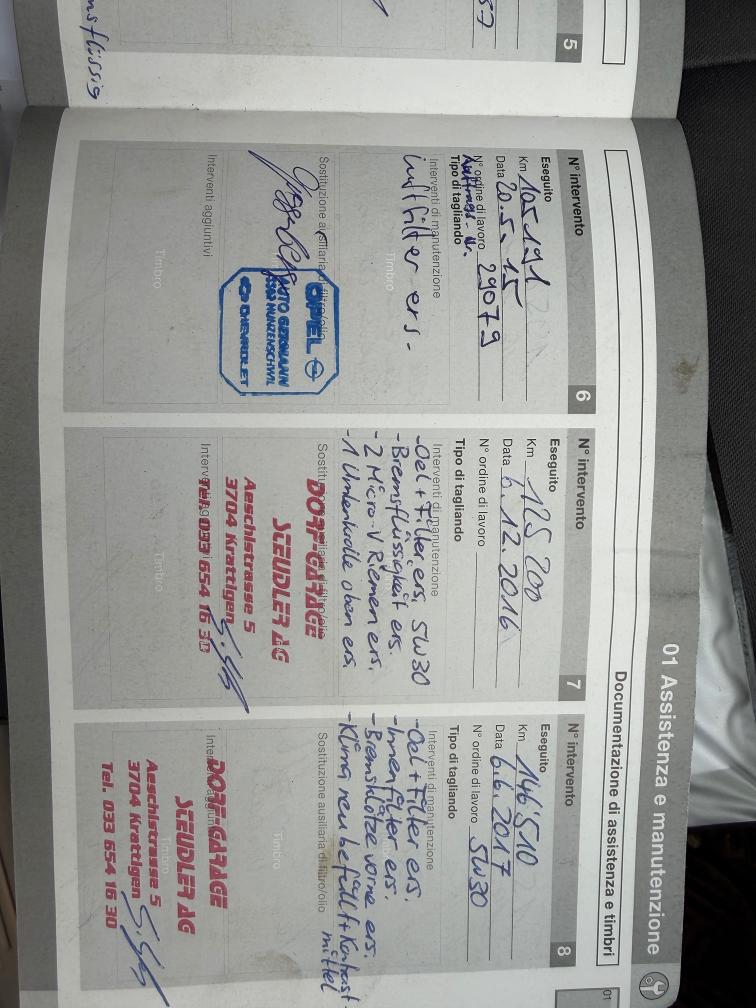 01 Assistenza e manutenzione
Documentazione di assistenza e timbri
01
5
57
nsflüssig
N° intervento 6
Eseguito
Km 105191
Data 20.5.15
N° ordine di lavoro 29079
Auftrags-Nr.
Tipo di tagliando
Interventi di manutenzione
Luftfilter ers-
Timbro
Sostituzione ausiliaria di filtro/olio
OPEL
AUTO GERMANN
5502 HUNZENSCHWIL
CHEVROLET
Timbro
Interventi aggiuntivi
Timbro
N° intervento 7
Eseguito
Km 125200
Data 6.12.2016
N° ordine di lavoro
Tipo di tagliando
Interventi di manutenzione
-Oel+Filter ers, 5W30
-Bremsflüssigkeit ers.
-2 Micro-V Riemen ers,
-1 Umlenkrolle oben ers.
Sostituzione ausiliaria di filtro/olio
DORF-GARAGE
STEUDLER AG
Aeschistrasse 5
3704 Krattigen
Tel. 033 654 16 30
Interventi aggiuntivi
Timbro
N° intervento 8
Eseguito
Km 146'510
Data 6.6.2017
N° ordine di lavoro 5W30
Tipo di tagliando
Interventi di manutenzione
-Oel+Filter ers.
-Innenfilter ers.
-Bremsklötze vorne ers.
-Klima neu befüllt+Kontrast
mittel
Sostituzione ausiliaria di filtro/olio
Timbro
Interventi aggiuntivi
DORF-GARAGE
STEUDLER AG
Timbro
Aeschistrasse 5
3704 Krattigen
Tel. 033 654 16 30